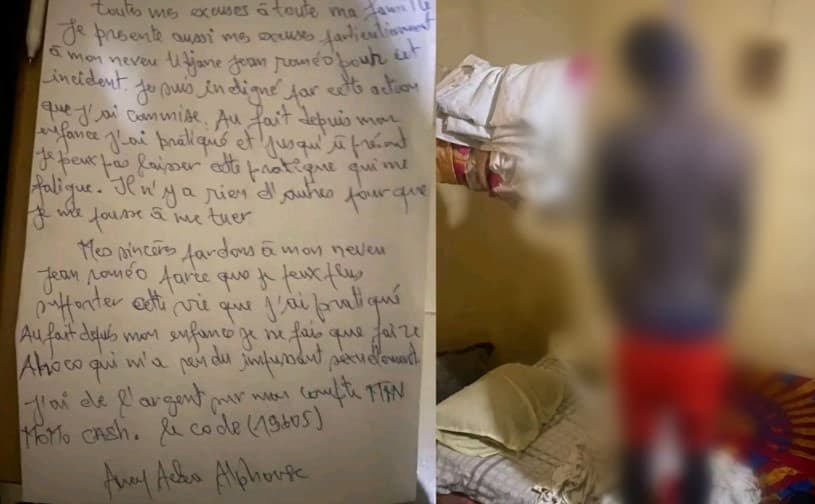 toutes mes excuses à toute ma famille
Je présente aussi mes excuses particulièrement
à mon neveu Jean roméo pour cet
incident. Je suis indigné par cette action
que j'ai commise. Au fait depuis mon
enfance j'ai pratiqué et jusqu'à présent
Je peux pas laisser cette pratique qui me
fatigue. Il n'y a rien d'autres pour que
je me pousse à me tuer
Mes sincères pardons à mon neveu
Jean roméo parce que je peux plus
supporter cette vie que j'ai pratiqué
Au fait depuis mon enfance je ne fais que faire
qui m'a rendu impuissant sexuellement
J'ai de l'argent sur mon compte MTN
MoMo CASH. le code (19605)
Alphonse